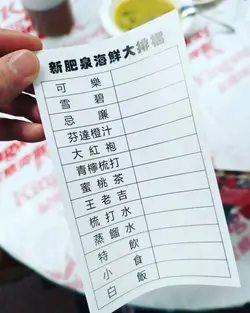 新肥泉海鮮大排檔
可樂
雪碧
忌廉
芬達橙汁
大紅袍
青檸梳打
蜜桃茶
王老吉
梳打水
蒸餾水
特飲
小食
白飯